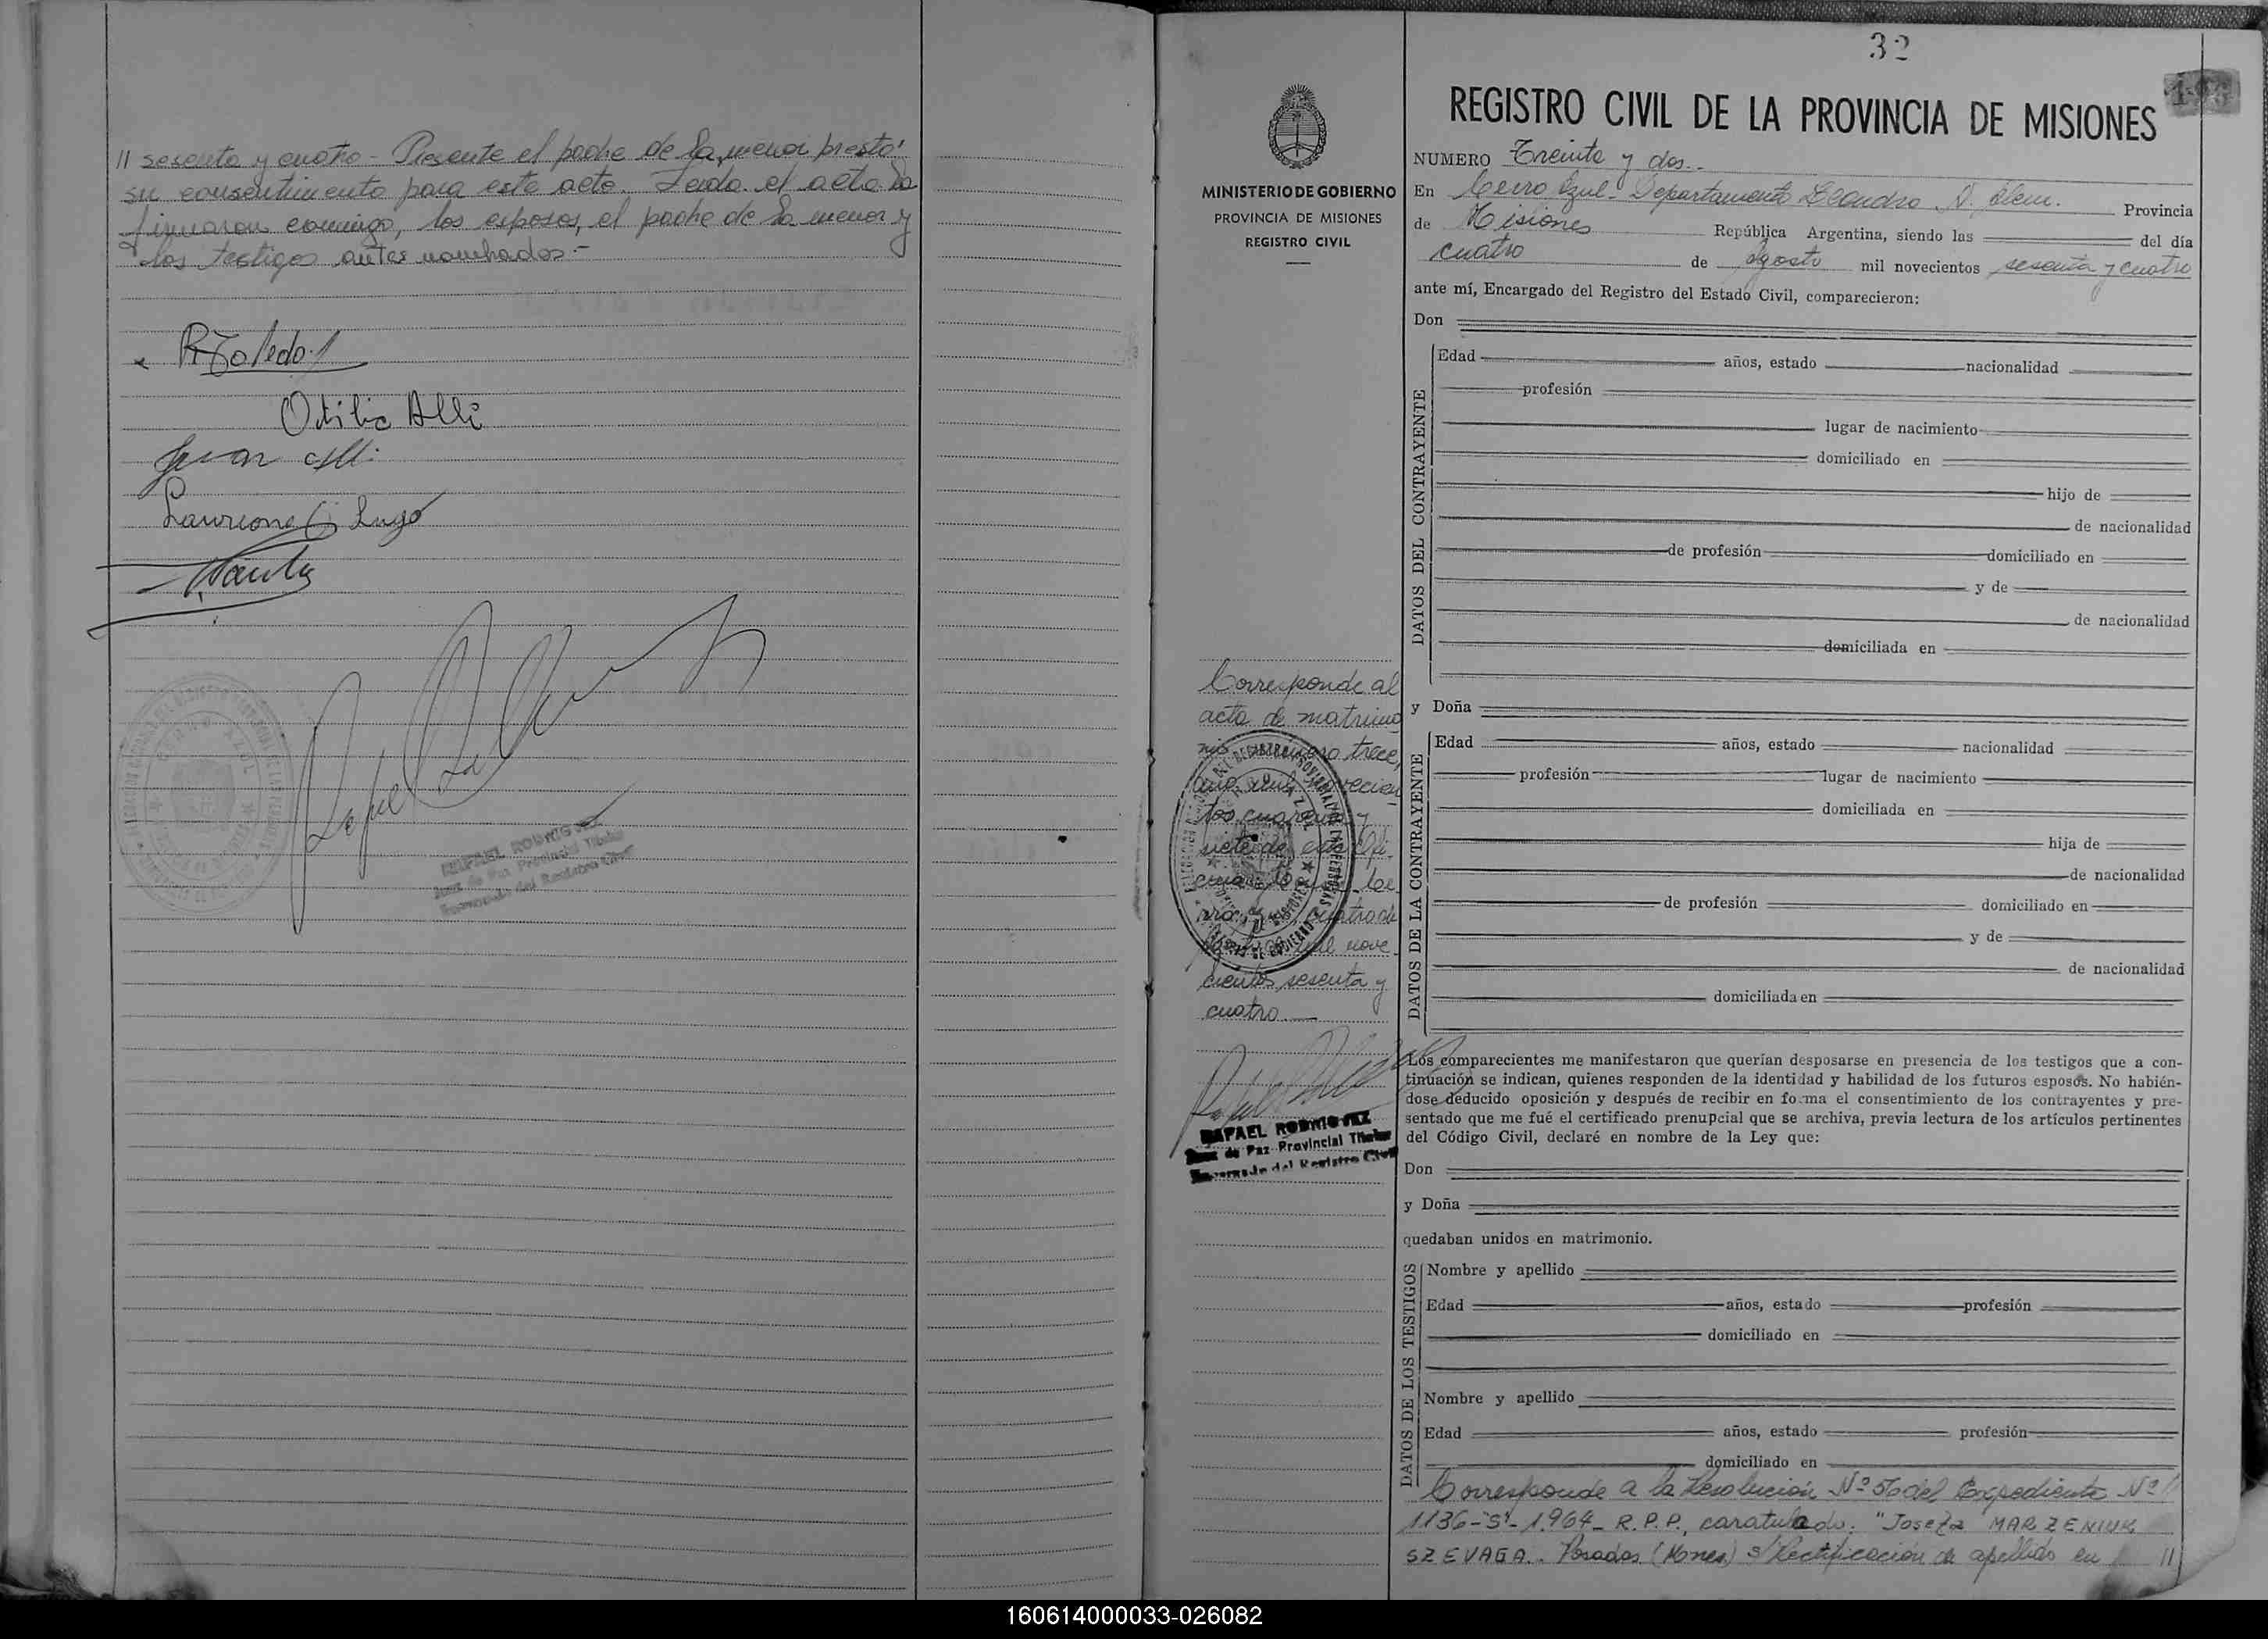 // sesenta y cuatro - Presente el padre de la menor prestó
su consentimiento para este acto. Leida el acta la
firmaron conmigo, los esposos, el padre de la menor y
los testigos antes nombrados -
R. Toledo
Otilia Alli
Juan Alli
Laureone G Lugo
RAFAEL RODRIGUEZ
Juez de Paz Provincial Titular
Encargado del Registro Civil
32
MINISTERIO DE GOBIERNO
PROVINCIA DE MISIONES
REGISTRO CIVIL
Corresponde al
acta de matrimo
nio número trece,
año mil novecien
tos cuarenta y
siete de esta Ofi
cina
cuatro de
mil nove
cientos sesenta y
cuatro
RAFAEL RODRIGUEZ
Juez de Paz Provincial Titular
Encargado del Registro Civil
REGISTRO CIVIL DE LA PROVINCIA DE MISIONES
NUMERO Treinta y dos
En Cerro Azul - Departamento Leandro N. Alem. Provincia
de Misiones República Argentina, siendo las del día
cuatro de Agosto mil novecientos sesenta y cuatro
ante mí, Encargado del Registro del Estado Civil, comparecieron:
Don
DATOS DEL CONTRAYENTE
Edad años, estado nacionalidad
profesión
lugar de nacimiento
domiciliado en
hijo de
de nacionalidad
de profesión domiciliado en
y de
de nacionalidad
domiciliada en
y Doña
DATOS DE LA CONTRAYENTE
Edad años, estado nacionalidad
profesión lugar de nacimiento
domiciliada en
hija de
de nacionalidad
de profesión domiciliado en
y de
de nacionalidad
domiciliada en
Los comparecientes me manifestaron que querían desposarse en presencia de los testigos que a con-
tinuación se indican, quienes responden de la identidad y habilidad de los futuros esposos. No habién-
dose deducido oposición y después de recibir en forma el consentimiento de los contrayentes y pre-
sentado que me fué el certificado prenupcial que se archiva, previa lectura de los artículos pertinentes
del Código Civil, declaré en nombre de la Ley que:
Don
y Doña
quedaban unidos en matrimonio.
DATOS DE LOS TESTIGOS
Nombre y apellido
Edad años, estado profesión
domiciliado en
Nombre y apellido
Edad años, estado profesión
domiciliado en
Corresponde a la Resolución Nº 56 del Expediente Nº
1136-"S"-1964- R.P.P., caratulado: "Josefa MARZENIUK
SZEVAGA. Posadas (Mnes) s/ Rectificación de apellido en //
160614000033-026082